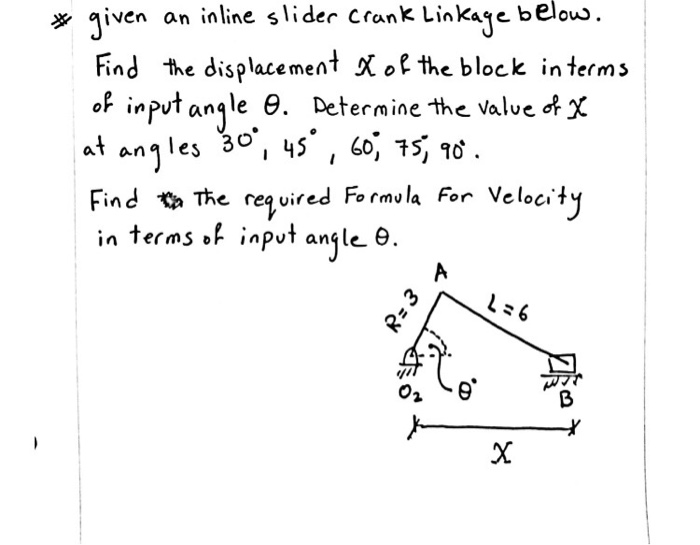 * given an inline slider Crank Linkage below.
Find the displacement X of the block in terms
of input angle θ. Determine the value of X
at angles 30°, 45°, 60°, 75°, 90°.
Find The required Formula For Velocity
in terms of input angle θ.
A
R=3
L=6
O₂
θ°
B
X